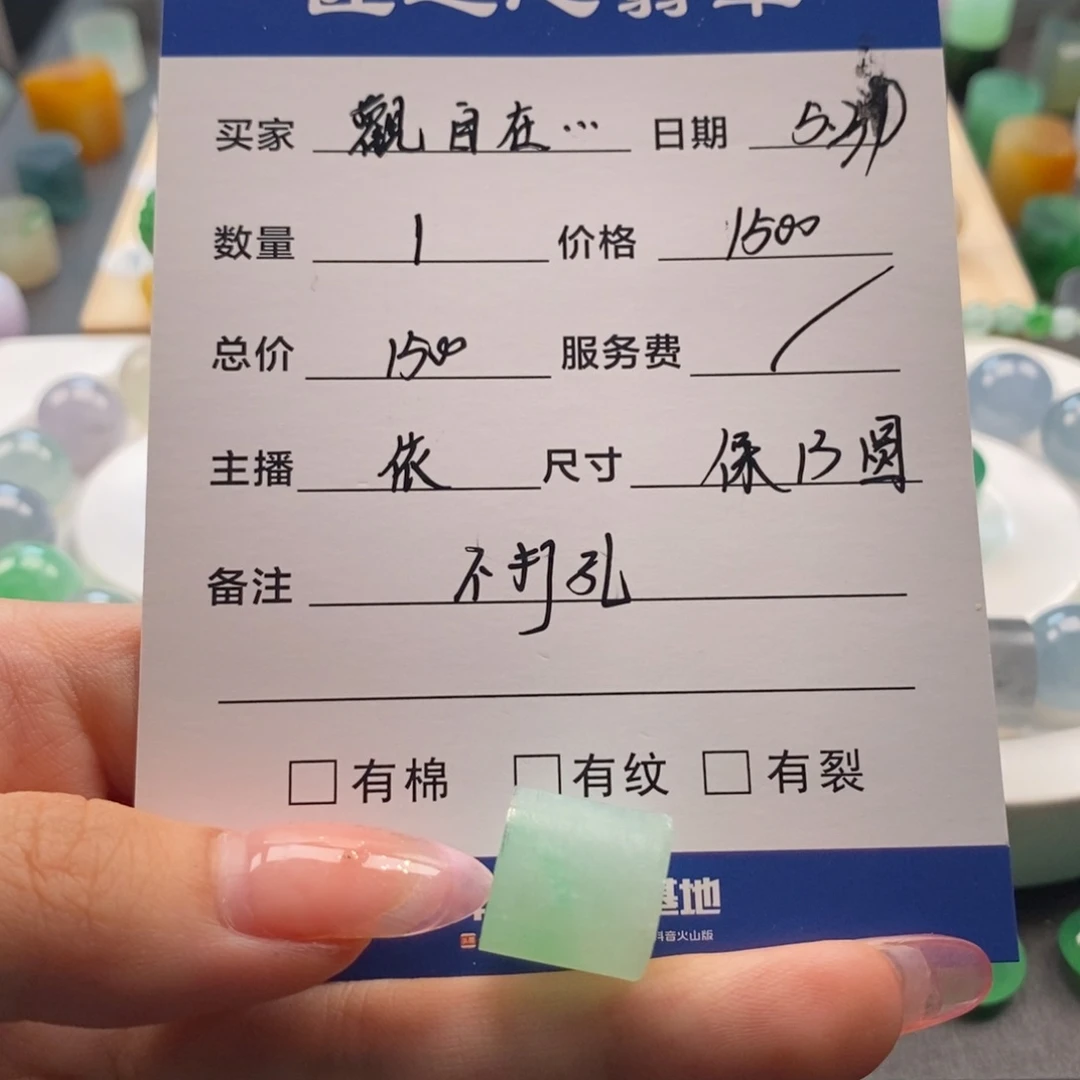 买家 觀自在… 日期
数量 1 价格 1500
总价 1500 服务费 /
主播 依 尺寸 保13圆
备注 不打孔
□有棉 □有纹 □有裂
基地
抖音火山版